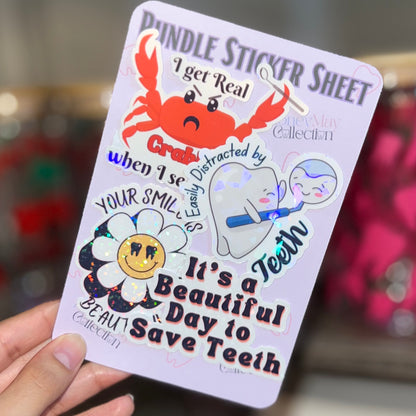 BUNDLE STICKER SHEET
I get Real
Crab
when I se
Collection
Easily Distracted by
Teeth
YOUR SMILE IS
BEAUT
Collection
It's a
Beautiful
Day to
Save Teeth